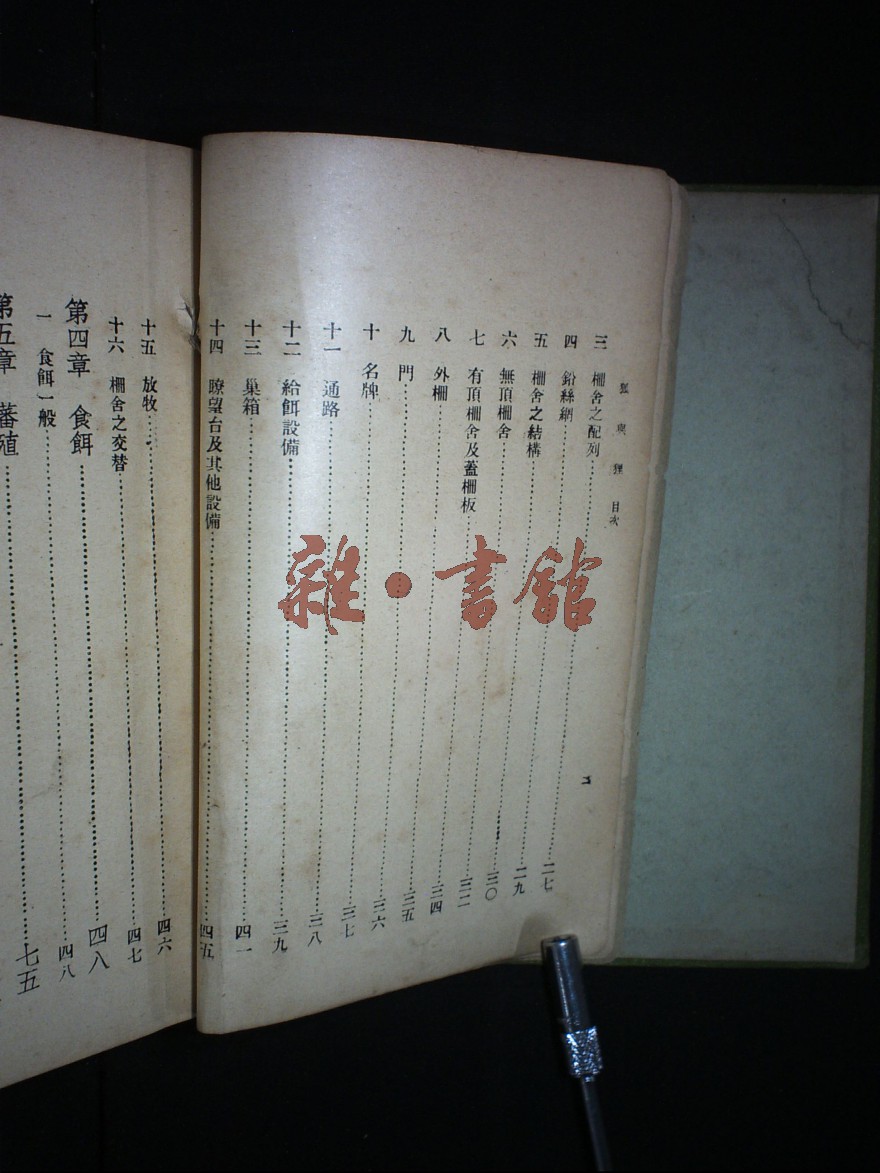 狐與狸 目次
三 柵舍之配列……二七
四 鉛絲網……二九
五 柵舍之結構……三〇
六 無頂柵舍……三二
七 有頂柵舍及蓋柵板……三四
八 外柵……三五
九 門……三六
十 名牌……三七
十一 通路……三八
十二 給餌設備……三九
十三 巢箱……四一
十四 瞭望台及其他設備……四五
十五 放牧……四六
十六 柵舍之交替……四七
第四章 食餌……四八
一 食餌一般……四八
第五章 蕃殖……七五
雜·書館